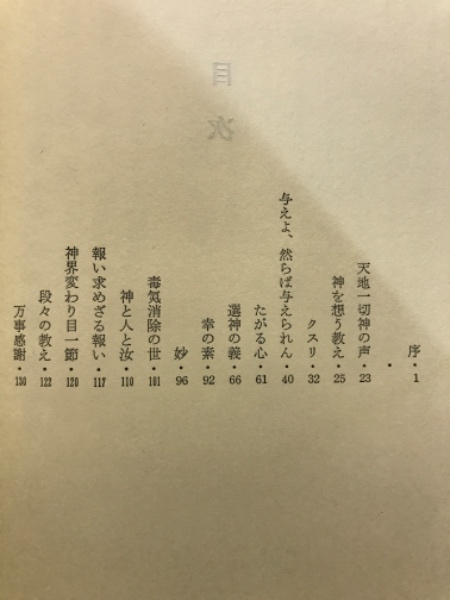 目次
序・1
・
天地一切神の声・23
神を想う教え・25
クスリ・32
与えよ、然らば与えられん・40
たがる心・61
選神の義・66
幸の素・92
妙・96
毒気消除の世・101
神と人と汝・110
報い求めざる報い・117
神界変わり目一節・120
段々の教え・122
万事感謝・130